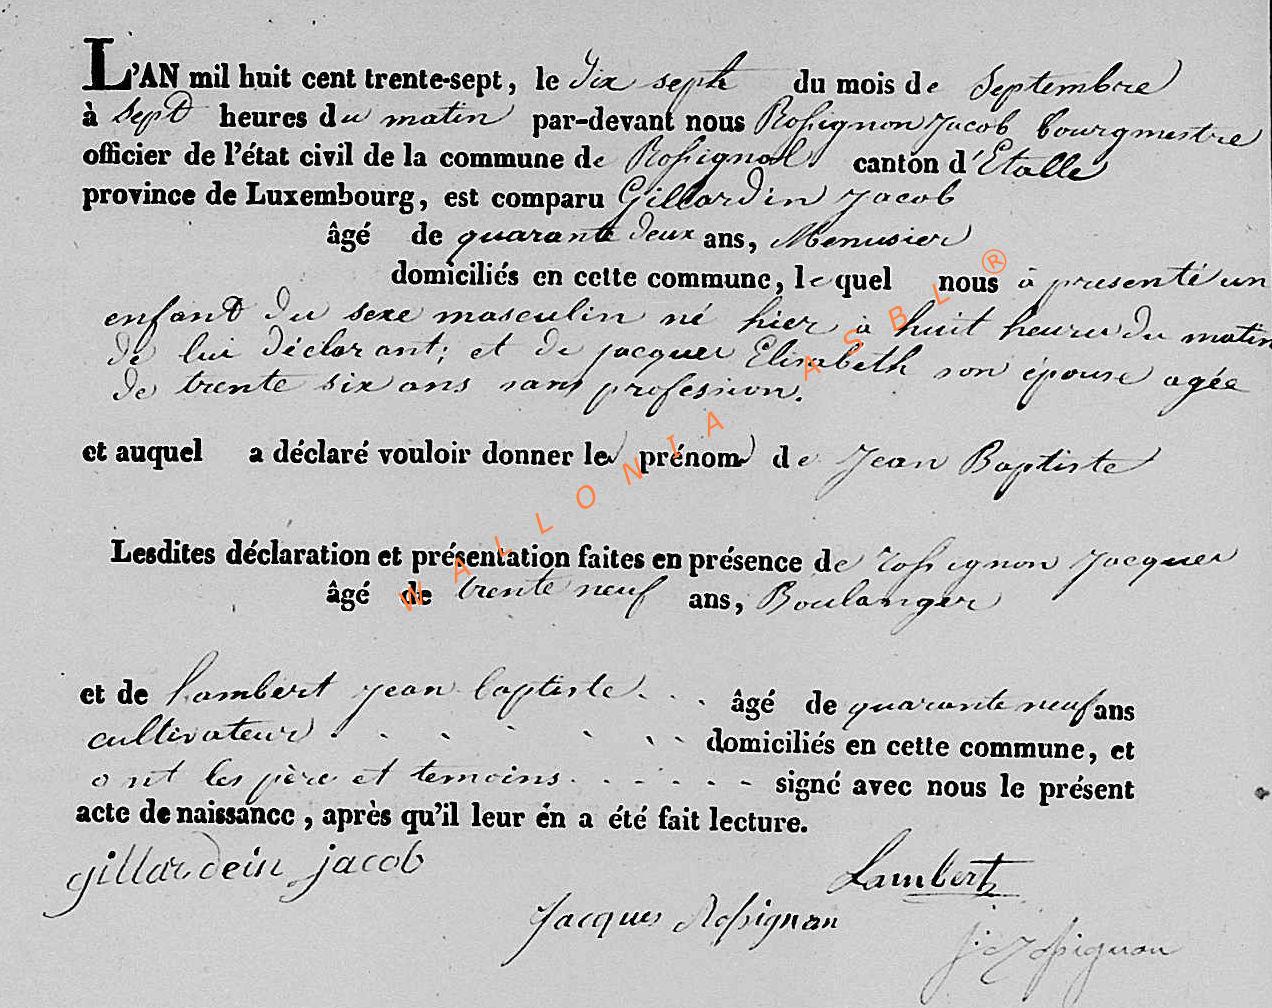 L'AN mil huit cent trente-sept, le dix sept du mois de Septembre
à Sept heures du matin par-devant nous Rossignon Jacob bourgmestre
officier de l'état civil de la commune de Rossignol canton d'Etalle
province de Luxembourg, est comparu Gillardin Jacob
âgé de quarante deux ans, Menusier
domiciliés en cette commune, le quel nous à presenté un
enfant du sexe masculin né hier à huit heures du matin
de lui déclarant; et de jacques Elisabeth son épouse agée
de trente six ans sans profession.
et auquel a déclaré vouloir donner le prénom de Jean Baptiste
Lesdites déclaration et présentation faites en présence de rossignon Jacques
âgé de trente neuf ans, Boulanger
et de Lambert jean baptiste . . . âgé de quarante neuf ans
cultivateur . . . . . . . domiciliés en cette commune, et
ont les père et temoins . . . . . . signé avec nous le présent
acte de naissance, après qu'il leur én a été fait lecture.
gillardein jacob
Lambert
Jacques Rossignon
J: Rossignon
WALLONIA ASBL ®